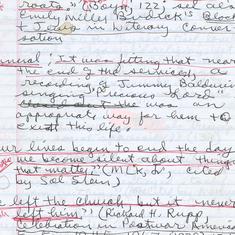 roots." (Boyd, 122; see also
Emily Miller Budick's Black
& Jews in Literary Conver
sation
funeral; It was fitting that near
the end of the services, a
recording of Jimmy Baldwin
singing "Precious Lord"
was an
appropriate way for him to
exist this life.
our lives begin to end the day
we become silent about things
that matter," (MLK, Jr., cited
by Sol Stein)
left the church but it never
left him." (Richard H. Rupp,
Celebration in Postwar America